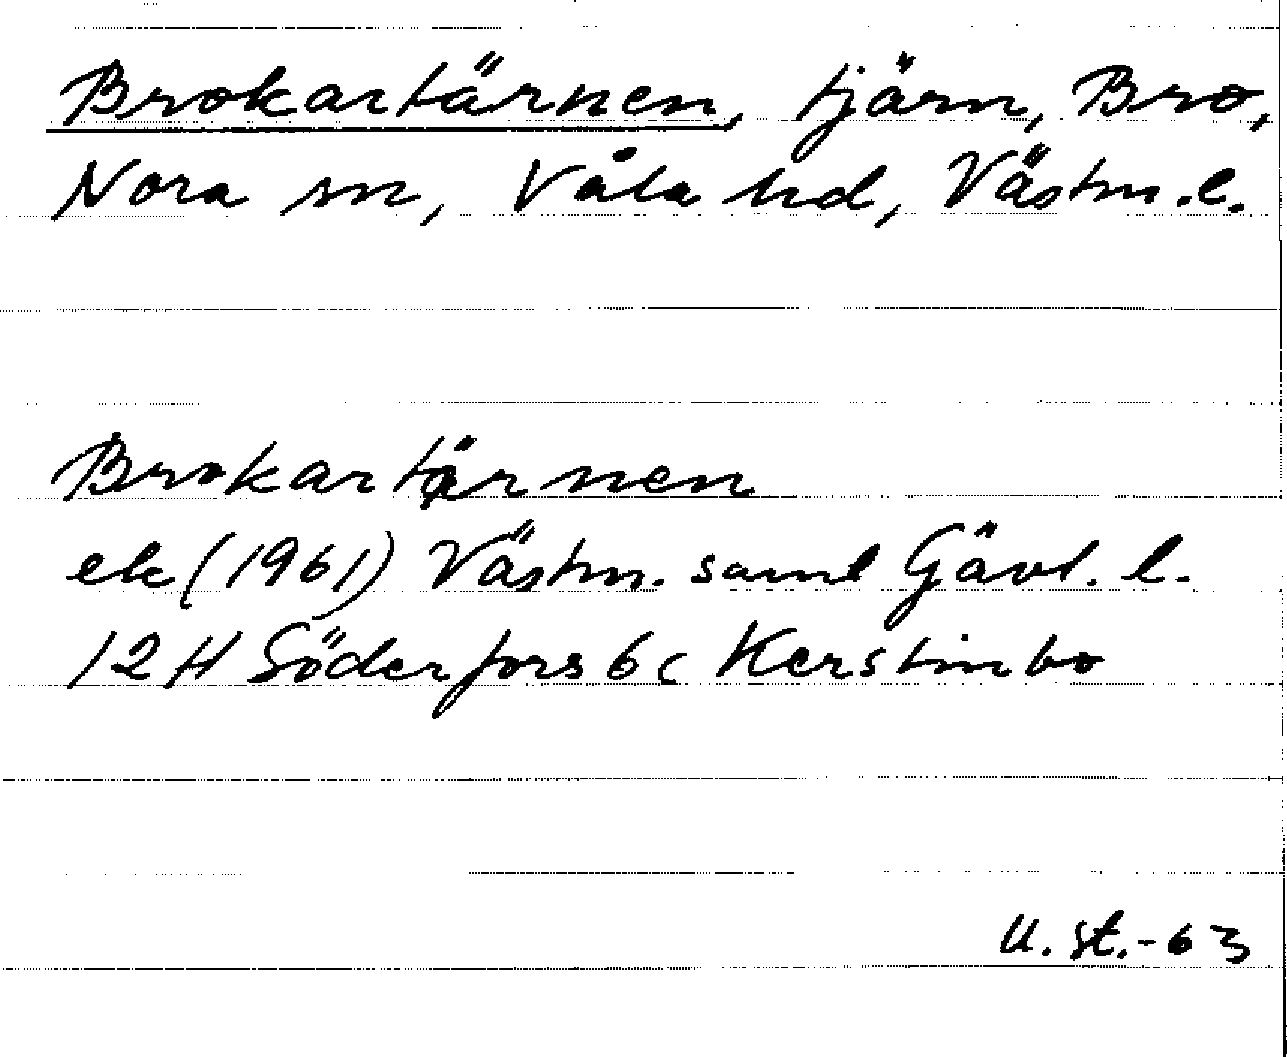 Brokartärnen, tjärn, Bro,
Nora sn, Våla hd, Västm. l.
Brokartärnen
ek (1961) Västm. saml Gävl. l.
12 H Söderfors 6 c Kerstinbo
U. st. - 63